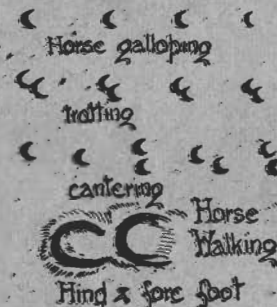 Horse galloping
trotting
cantering
Horse
Walking
Hind & fore foot